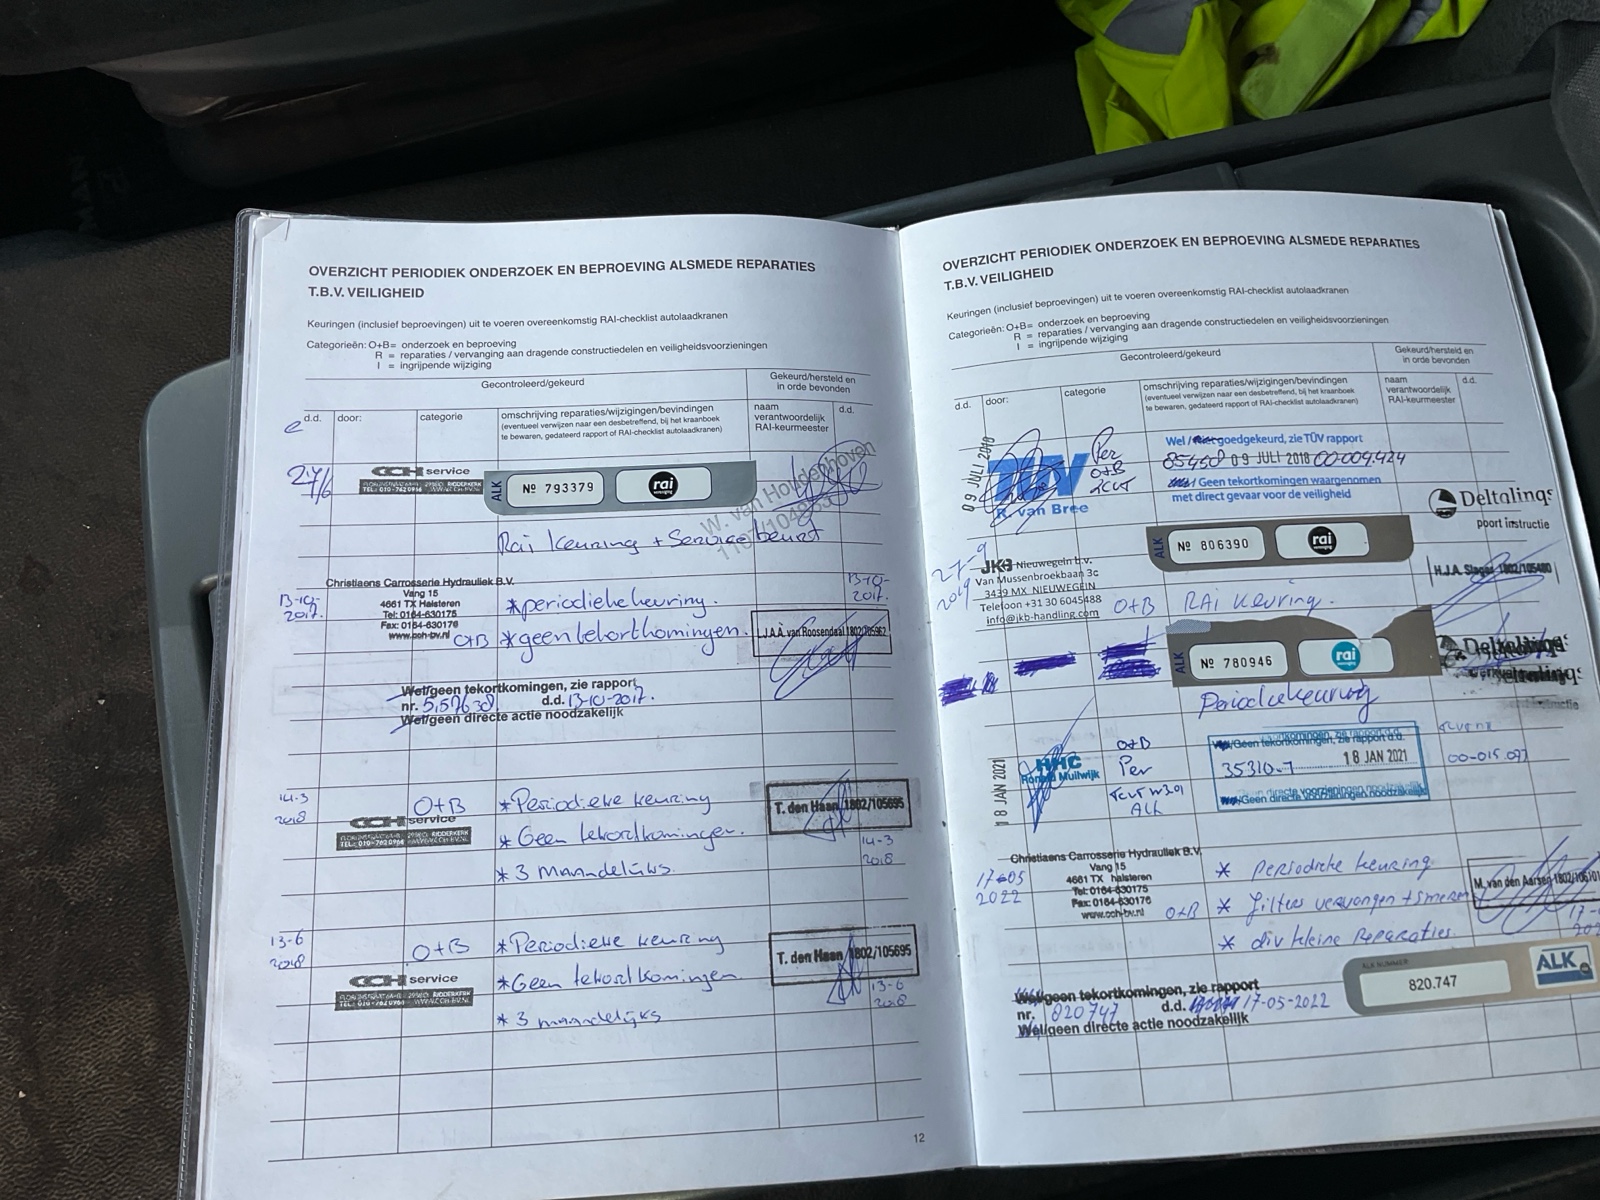 OVERZICHT PERIODIEK ONDERZOEK EN BEPROEVING ALSMEDE REPARATIES
T.B.V. VEILIGHEID
Keuringen (inclusief beproevingen) uit te voeren overeenkomstig RAI-checklist autolaadkranen
Categorieën: O+B= onderzoek en beproeving
R = reparaties / vervanging aan dragende constructiedelen en veiligheidsvoorzieningen
I = ingrijpende wijziging
Gecontroleerd/gekeurd
Gekeurd/hersteld en
in orde bevonden
d.d.
door:
categorie
omschrijving reparaties/wijzigingen/bevindingen
(eventueel verwijzen naar een desbetreffend, bij het kraanboek
te bewaren, gedateerd rapport of RAI-checklist autolaadkranen)
naam
verantwoordelijk
RAI-keurmeester
d.d.
27/6
CCH service
ALK
Nº 793379
rai
W. van Houdenhoven
Rai keuring + Servicebeurt
13-10-
2017.
Christiaens Carrosserie Hydrauliek B.V.
Vang 15
4661 TX Halsteren
Tel: 0164-630175
Fax: 0164-630176
www.cch-bv.nl
O+B
* periodieke keuring.
* geen tekortkomingen.
L.J.A.A. van Roosendaal 1802/105962
13-10-
2017.
Wel/geen tekortkomingen, zie rapport
nr. d.d. 13-10-2017.
Wel/geen directe actie noodzakelijk
14-3
2018
O+B
CCH service
* Periodieke keuring
* Geen tekortkomingen.
* 3 maandelijks.
T. den Haan 1802/105695
14-3
2018
13-6
2018
O+B
CCH service
* Periodieke keuring
* Geen tekortkomingen.
* 3 maandelijks
T. den Haan 1802/105695
13-6
2018
12
OVERZICHT PERIODIEK ONDERZOEK EN BEPROEVING ALSMEDE REPARATIES
T.B.V. VEILIGHEID
Keuringen (inclusief beproevingen) uit te voeren overeenkomstig RAI-checklist autolaadkranen
Categorieën: O+B= onderzoek en beproeving
R = reparaties / vervanging aan dragende constructiedelen en veiligheidsvoorzieningen
I = ingrijpende wijziging
Gecontroleerd/gekeurd
Gekeurd/hersteld en
in orde bevonden
d.d.
door:
categorie
omschrijving reparaties/wijzigingen/bevindingen
(eventueel verwijzen naar een desbetreffend, bij het kraanboek
te bewaren, gedateerd rapport of RAI-checklist autolaadkranen)
naam
verantwoordelijk
RAI-keurmeester
d.d.
09 JULI 2018
TÜV
R. van Bree
Per
O+B
Wel / goedgekeurd, zie TÜV rapport
85450 09 JULI 2018 00009.424
Geen tekortkomingen waargenomen
met direct gevaar voor de veiligheid
Deltalinqs
poort instructie
ALK
Nº 806390
rai
27-9
2019
JKB Nieuwegein b.v.
Van Mussenbroekbaan 3c
3439 MX NIEUWEGEIN
Telefoon +31 30 6045488
info@jkb-handling.com
O+B
RAi keuring.
H.J.A. Slager 1802/105480
ALK
Nº 780946
rai
Deltalinqs
Periodiekeuring
18 JAN 2021
HHC
Ronald Muilwijk
O+B
Per
ALK
Geen tekortkomingen, zie rapport d.d.
35310-7 18 JAN 2021
Geen directe voorzieningen noodzakelijk
00-015.097
17-05
2022
Christiaens Carrosserie Hydrauliek B.V.
Vang 15
4661 TX halsteren
Tel: 0164-630175
Fax: 0164-630176
www.cch-bv.nl
O+B
* periodieke keuring.
* filters vervangen + smeren
* div kleine Reparaties.
M. van den Aarsen 1802/
ALK NUMMER
820.747
ALK
Wel/geen tekortkomingen, zie rapport
nr. 820747 d.d. 17-05-2022
Wel/geen directe actie noodzakelijk